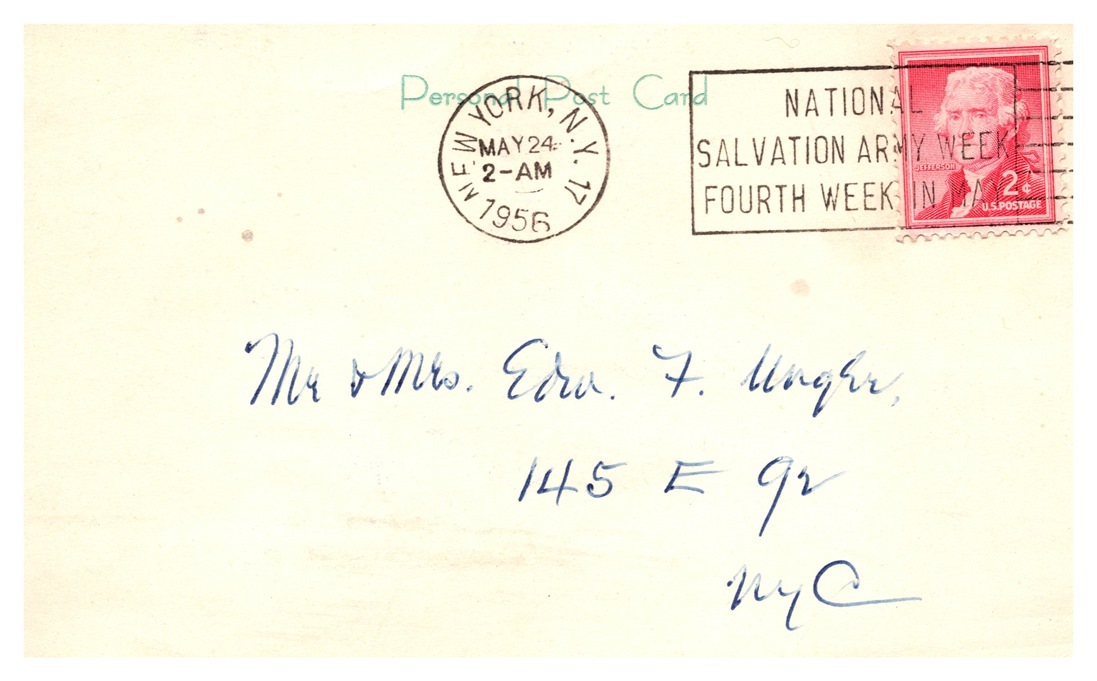 Personal Post Card
NEW YORK, N.Y. 17
MAY 24
2-AM
1956
NATIONAL
SALVATION ARMY WEEK
FOURTH WEEK IN MAY
JEFFERSON
2¢
U.S. POSTAGE
Mr & Mrs. Edw. F. Unger,
145 E 92
NYC